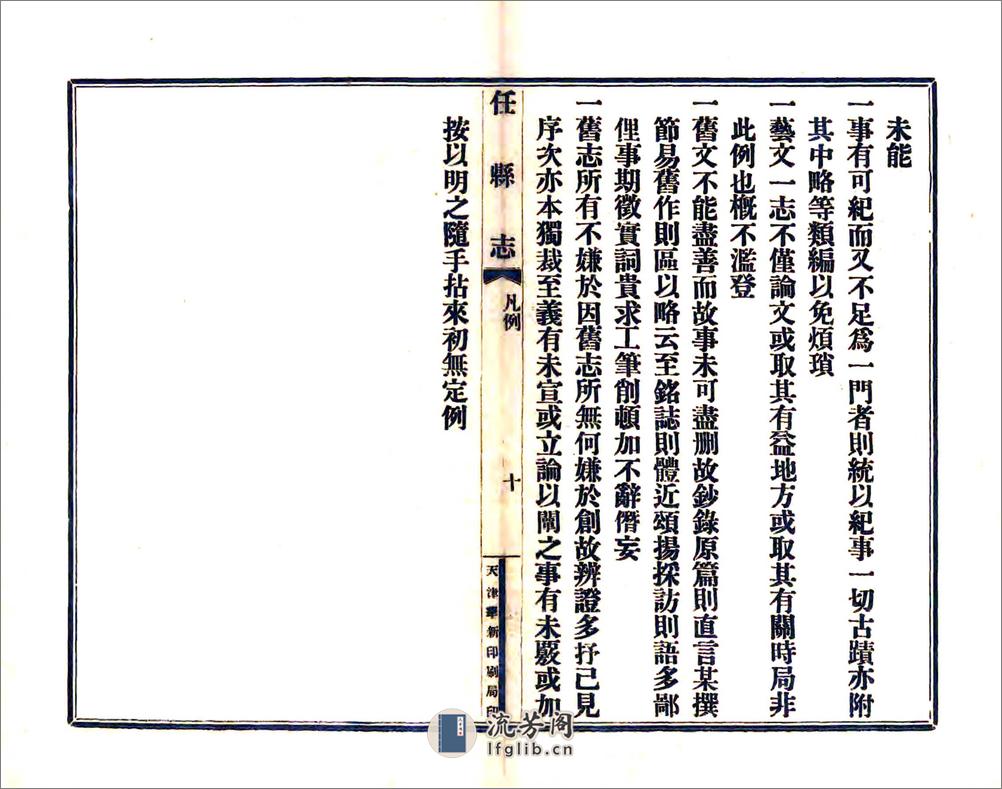 未能
一事有可紀而又不足爲一門者則統以紀事一切古蹟亦附
其中略等類編以免煩瑣
一藝文一志不僅論文或取其有益地方或取其有關時局非
此例也槪不濫登
一舊文不能盡善而故事未可盡删故鈔錄原篇則直言某撰
節易舊作則區以略云至銘誌則體近頌揚採訪則語多鄙
俚事期徵實詞貴求工筆削頓加不辭僭妄
一舊志所有不嫌於因舊志所無何嫌於創故辨證多抒己見
序次亦本獨裁至義有未宣或立論以闡之事有未覈或加
任縣志
凡例
十
天津華新印刷局印
按以明之隨手拈來初無定例
流芳阁
lfglib.cn